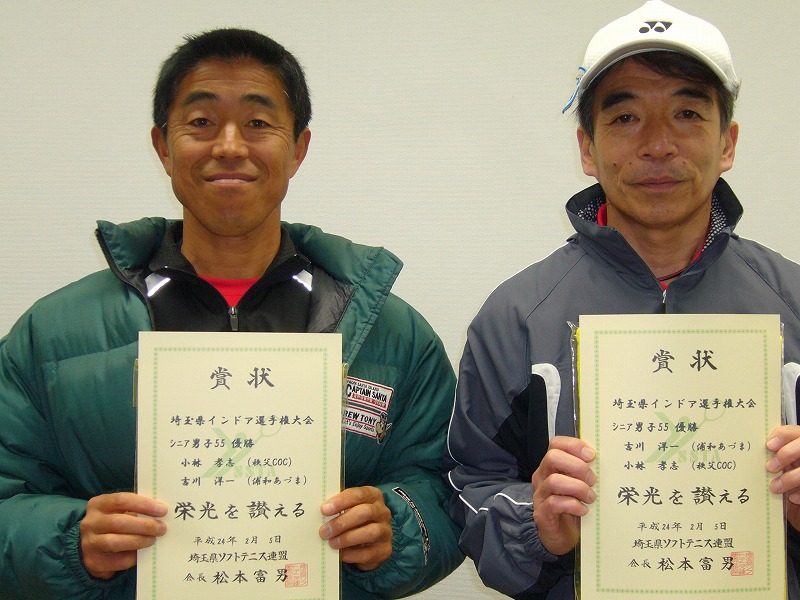 賞状
埼玉県インドア選手権大会
シニア男子55 優勝
小林 孝志 (秩父COC)
吉川 洋一 (浦和あづま)
栄光を讃える
平成24年 2月 5日
埼玉県ソフトテニス連盟
会長 松本富男
CAPTAIN SANTA
REW TONY
賞状
埼玉県インドア選手権大会
シニア男子55 優勝
吉川 洋一 (浦和あづま)
小林 孝志 (秩父COC)
栄光を讃える
平成24年 2月 5日
埼玉県ソフトテニス連盟
会長 松本富男